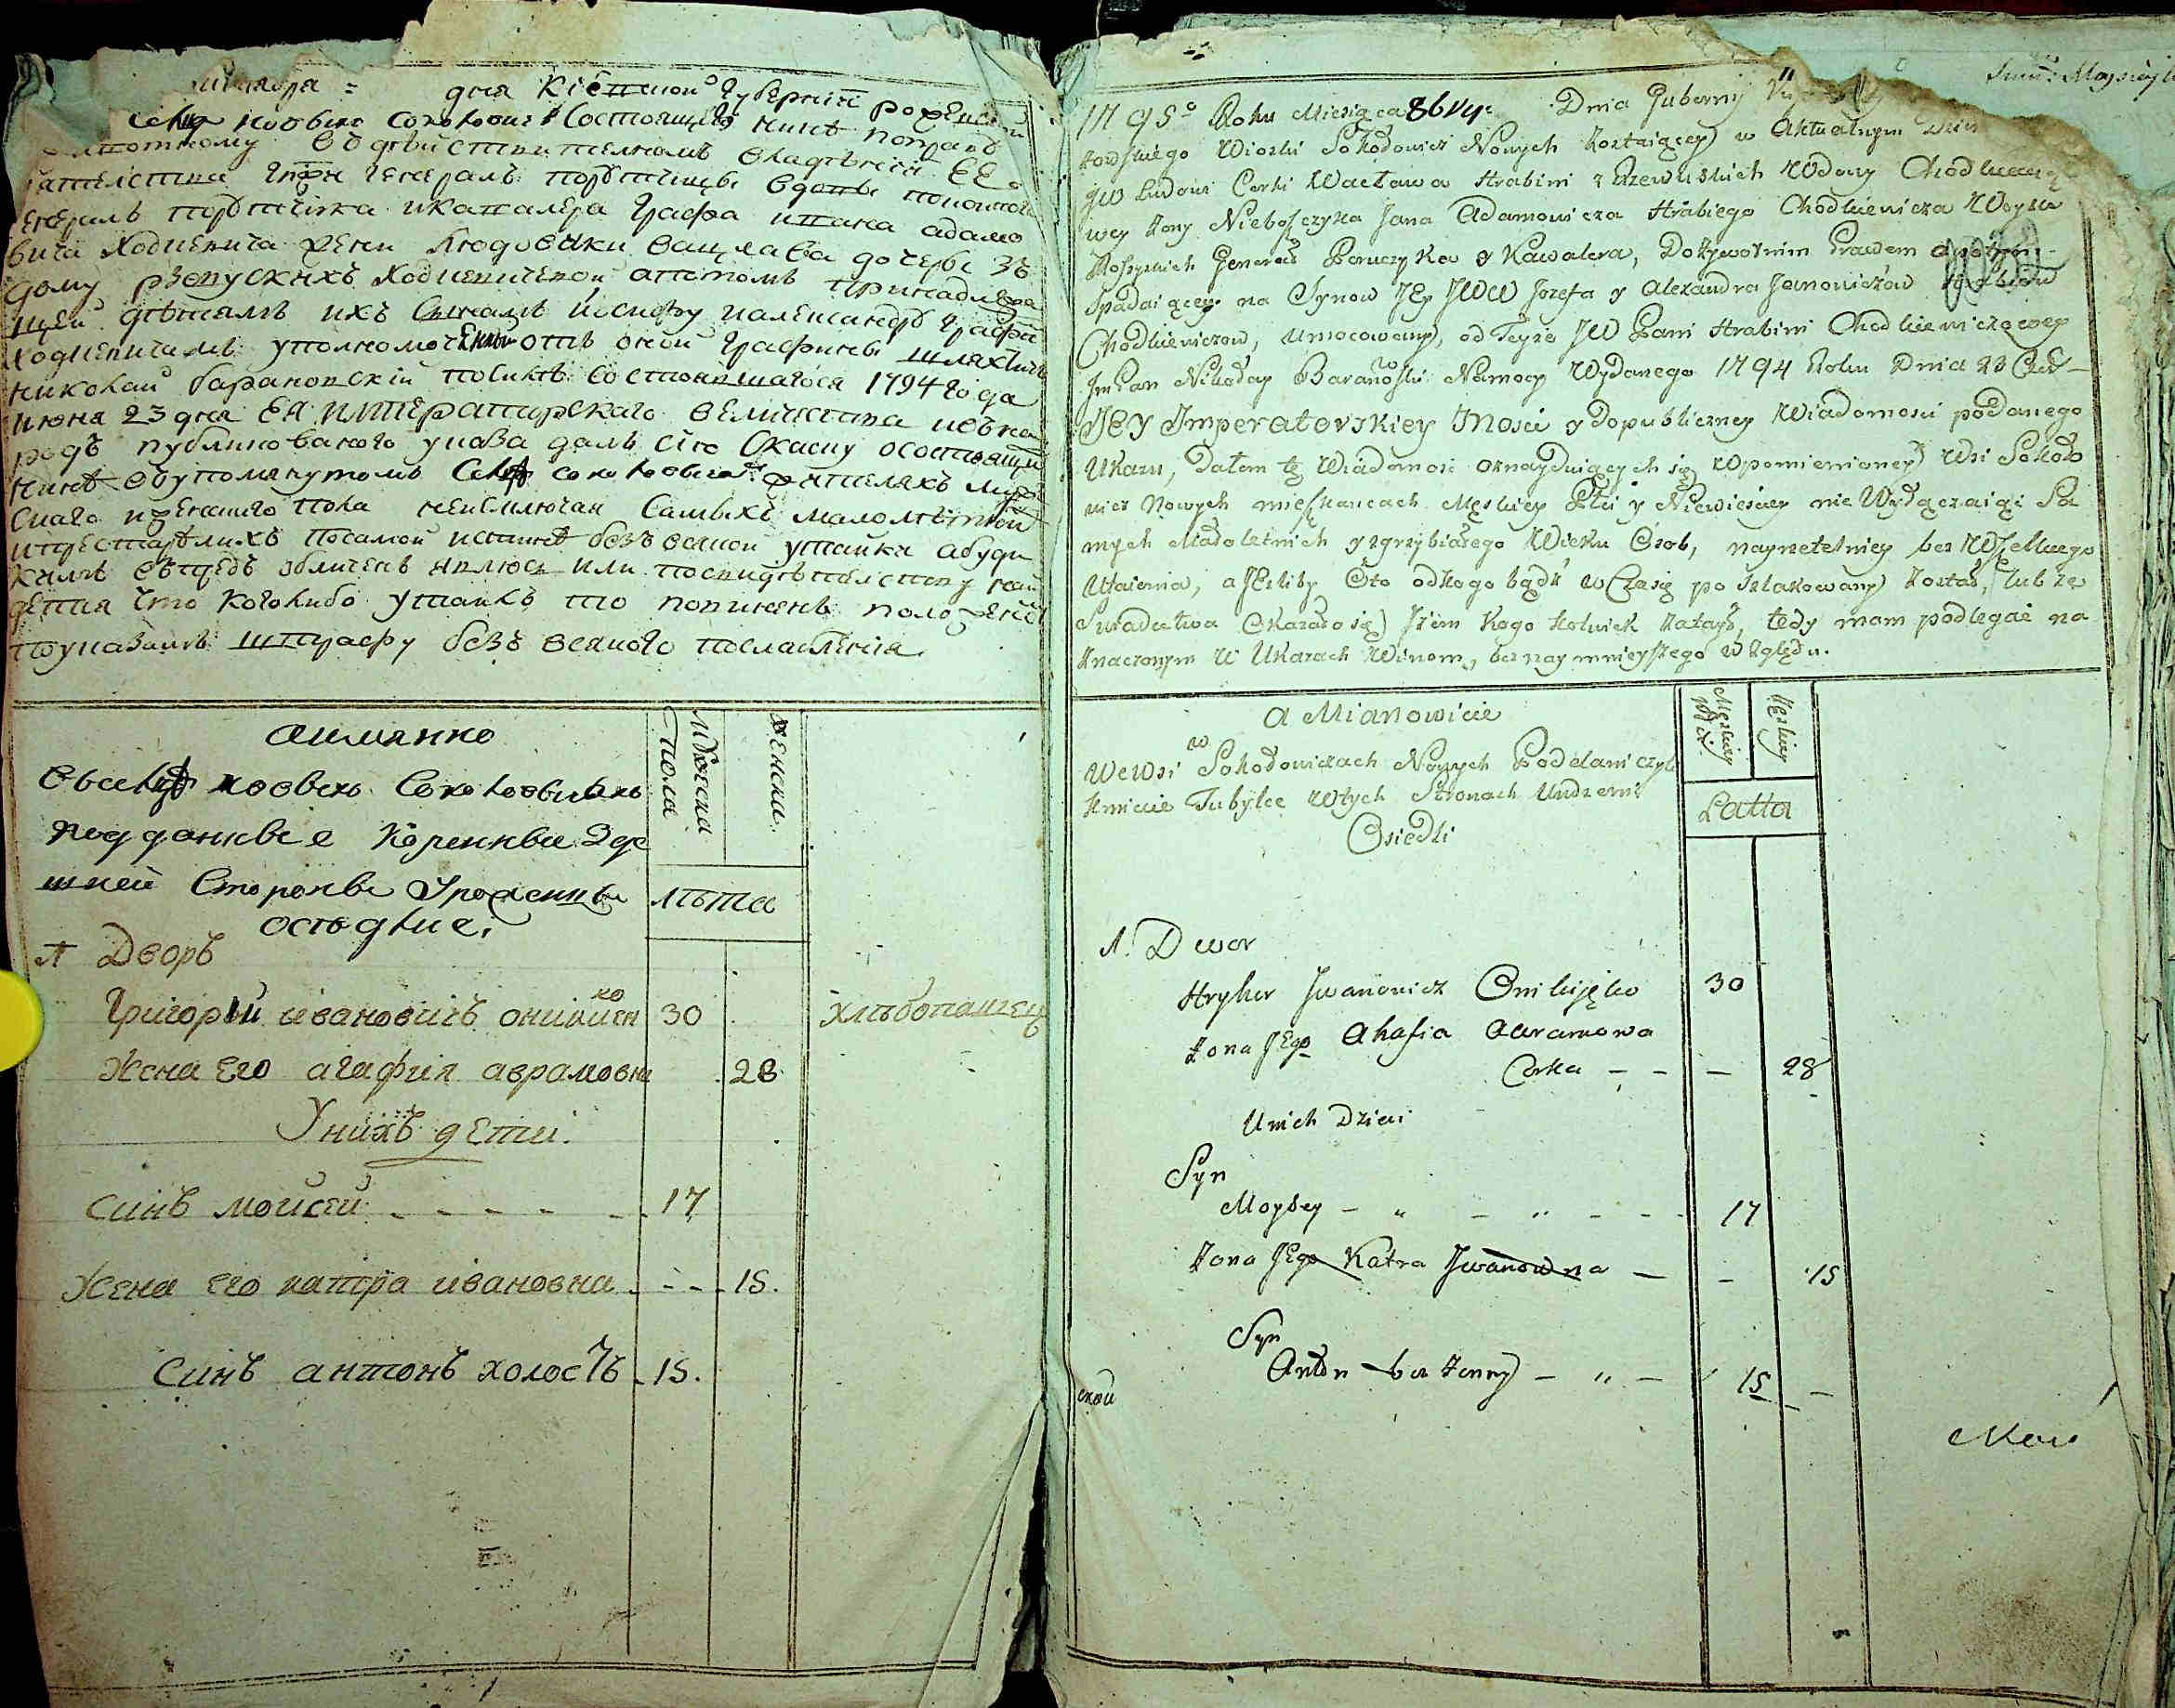 дня Кіевской Губерніи
села новыхъ Соколовичъ состоящего нинѣ поправѣ
въ дѣйствителномъ владѣніи ЕЕ
генералъ порутчицы вдовы покойного
генералъ порутчика икавалера Графа ивана адамо
вича Ходкевича жены Людовики вацлава дочери Зъ
дому рзевускихъ Ходкевичевой апотомъ принадлежа
щей дѣтямъ ихъ Синамъ йосифу иалександру Графамъ
ходкевичамъ уполномоченный отъ оной Графины шляхтичъ
николай барановскій
июня 23 дня ЕЯ ИМПЕРАТОРСКАГО величества внѣ на
родъ публикованого указа далъ Сію Скаску осостоящи
нинѣ въупомянутомъ Селѣ соколовичахъ жителяхъ муже
скаго иженского пола неисключая Самыхъ малолѣтной
ипрестарѣлихъ посамой истинѣ безъ всякой утайки абуди
кимъ въпредь обличенъ явлюсь или посвидѣтелству най
детця что кого либо утаилъ то повиненъ положенной
поуказамъ штрафу безъ всякого послабленія
аимянно
Въселѣ новыхъ Соколовичахъ
подданные Коренные Зде
шней Стороны Уроженны
оседлие.
мужеска пола
женска.
лѣта
1 Дворъ
Григорый ивановичъ оникиенко 30 хлѣбопашец
Жена Его агафия аврамовна 28
Унихъ дети.
синъ мойсей 17
Жена его катра ивановна 15.
синъ антонъ холостъ 15.
1795º Roku Miesiąca 8bry: Dnia Guberny
kowskiego Wioski Sokołowicz Nowych Zostaiącey w Aktualnym
JW Ludowi Corki Wacława Hrabini z Rzewuskich Wdowy Chodkiewiczo
wey Zony Nieboszczyka Jana Adamowicza Hrabiego Chodkiewicza Woysk
Rossyiskich Generał Poruczyka y Kawalera, Dożywotnim Prawem a potym
Spadaiącey na Synow Jey JWW Jozefa y Alexandra Janowiczow Hrabiow
Chodkiewiczow, Umocowany od Teyże JW Pani Hrabini Chodkiewiczowey
Jm Pan Nikołay Baranowski Namocy Wydanego 1794 Roku Dnia 23 Czer
JEY Imperatorskiey Mości y Dopubliczney Wiadomości podanego
Ukazu, Dałem tę Wiadomość oznayduiących się Wpomienioney Wsi Sokoło
wicz Nowych mieszkancach Męskiey Płci y Niewiesciey nie Wyłączaiąc Sa
mych Małoletnich y zgrzybiałego Wieku Osob, nayrzetelniey bez Wszelkiego
Utaienia, a Jeżliby Kto odkogo bądź w Czasię po szlakowany Został, lub ze
Swiadectwa Okazało się) Iżem Kogo kolwiek Zataił, tedy mam podlegać na
Znaczonym w Ukazach Winom, bez naymnieyszego Względu.
a Mianowicie
We Wsi w Sokołowiczach Nowych Poddani czyli
Kmiecie Tubylce Wtych Stronach Urodzeni
Osiedli
Męskiey Płci
Latta
1. Dwor
Hryhor Jwanowicz Onikijęko 30
Zona Jego Ahafia Awramowa
Corka 28
Unich Dzieci
Syn
Moysey 17
Zona Jego Katra Jwanowna 15
Syn
Anton bez Zenny 15
ской